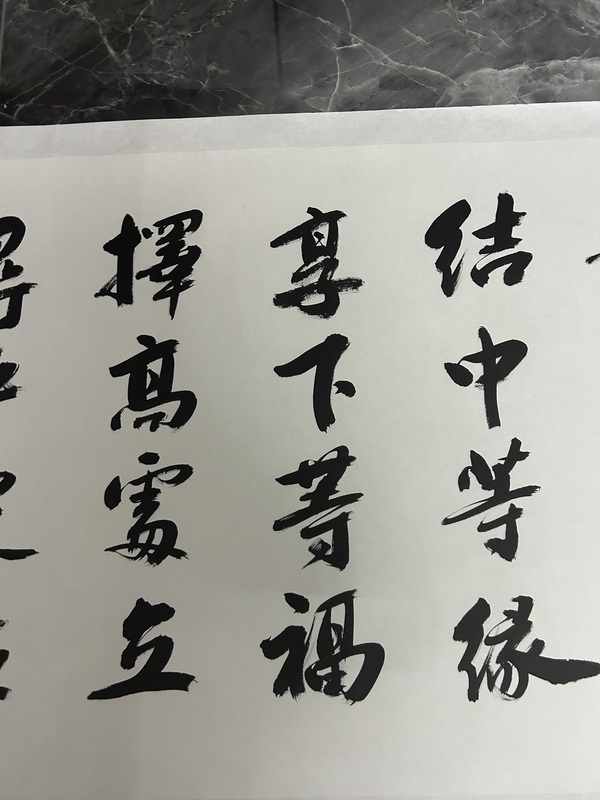 結中等緣
享下等福
擇高處立